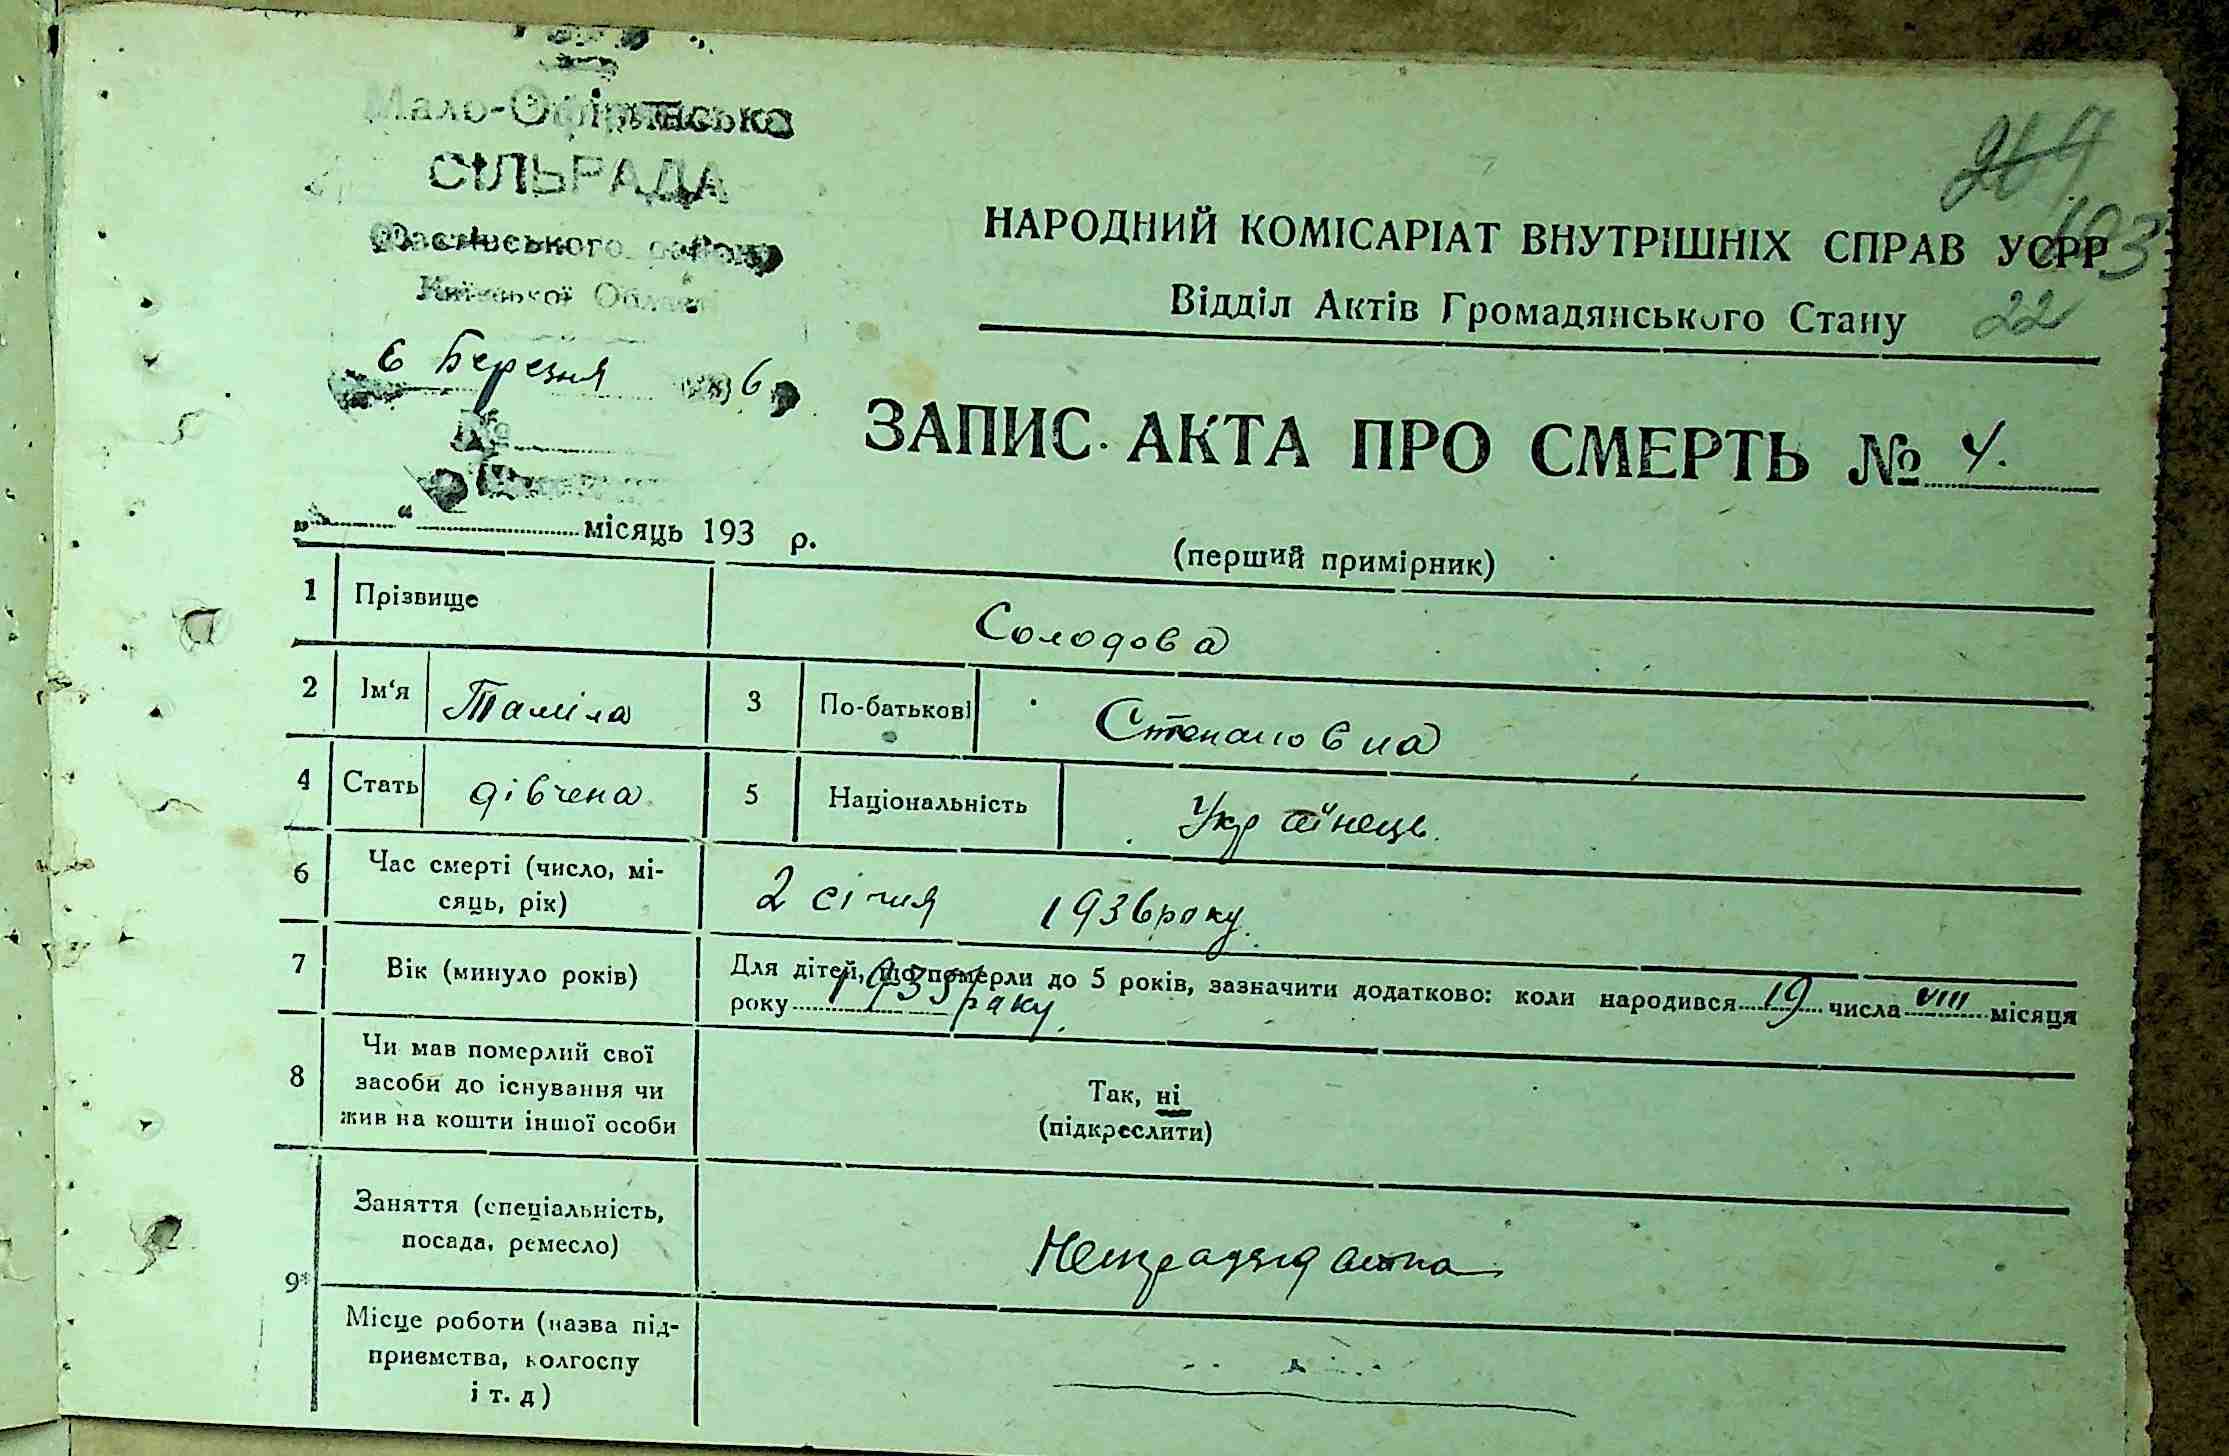 Мало-Офірнянська
СІЛЬРАДА
Фастівського району
Київської Області
6 Березня 1936
№
НАРОДНИЙ КОМІСАРІАТ ВНУТРІШНІХ СПРАВ УСРР
193
Відділ Актів Громадянського Стану 22
ЗАПИС АКТА ПРО СМЕРТЬ № 4.
„ “ місяць 193 р.
(перший примірник)
1 Прізвище Солодова
2 Ім‘я Таміла 3 По-батькові Степановна
4 Стать дівчена 5 Національність Українець.
6 Час смерті (число, мі-
сяць, рік) 2 січня 1936 року.
7 Вік (минуло років) Для дітей, що померли до 5 років, зазначити додатково: коли народився 19 числа VIII місяця
року 1935 року.
8 Чи мав померлий свої
засоби до існування чи
жив на кошти іншої особи
Так, ні
(підкреслити)
9* Заняття (спеціальність,
посада, ремесло)
Місце роботи (назва під-
приємства, колгоспу
і т. д)